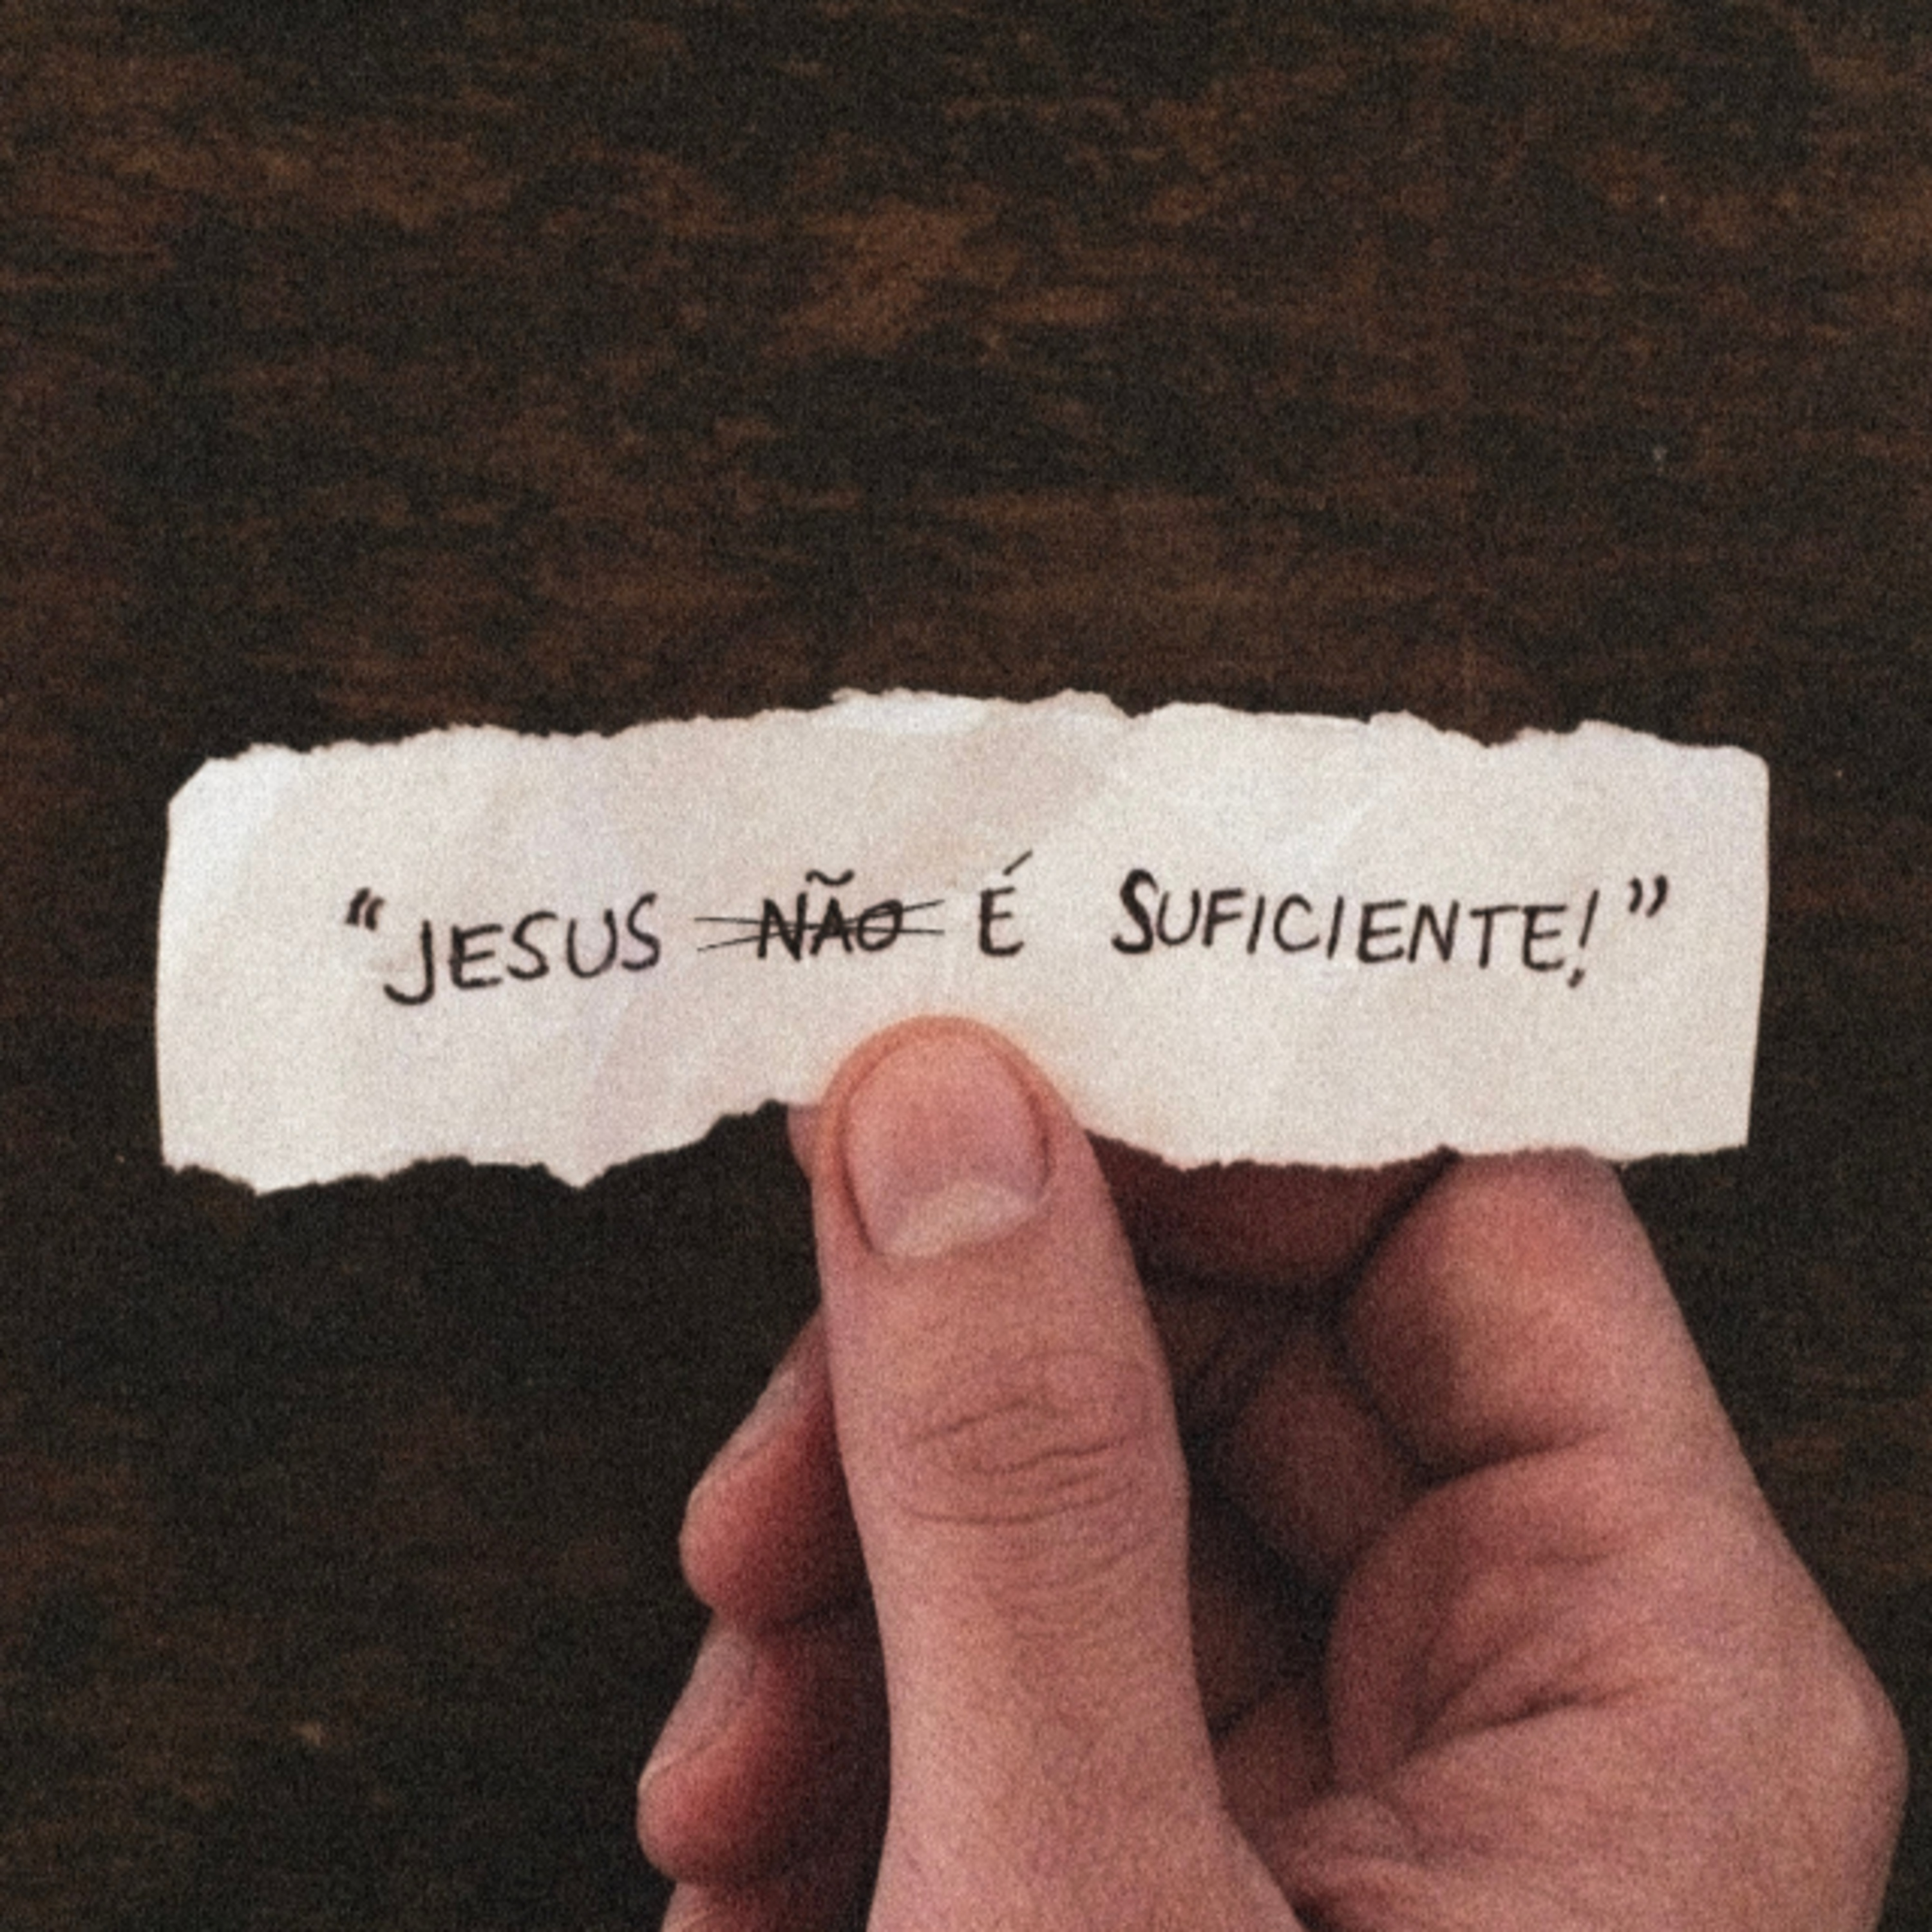 “JESUS NÃO É SUFICIENTE!”